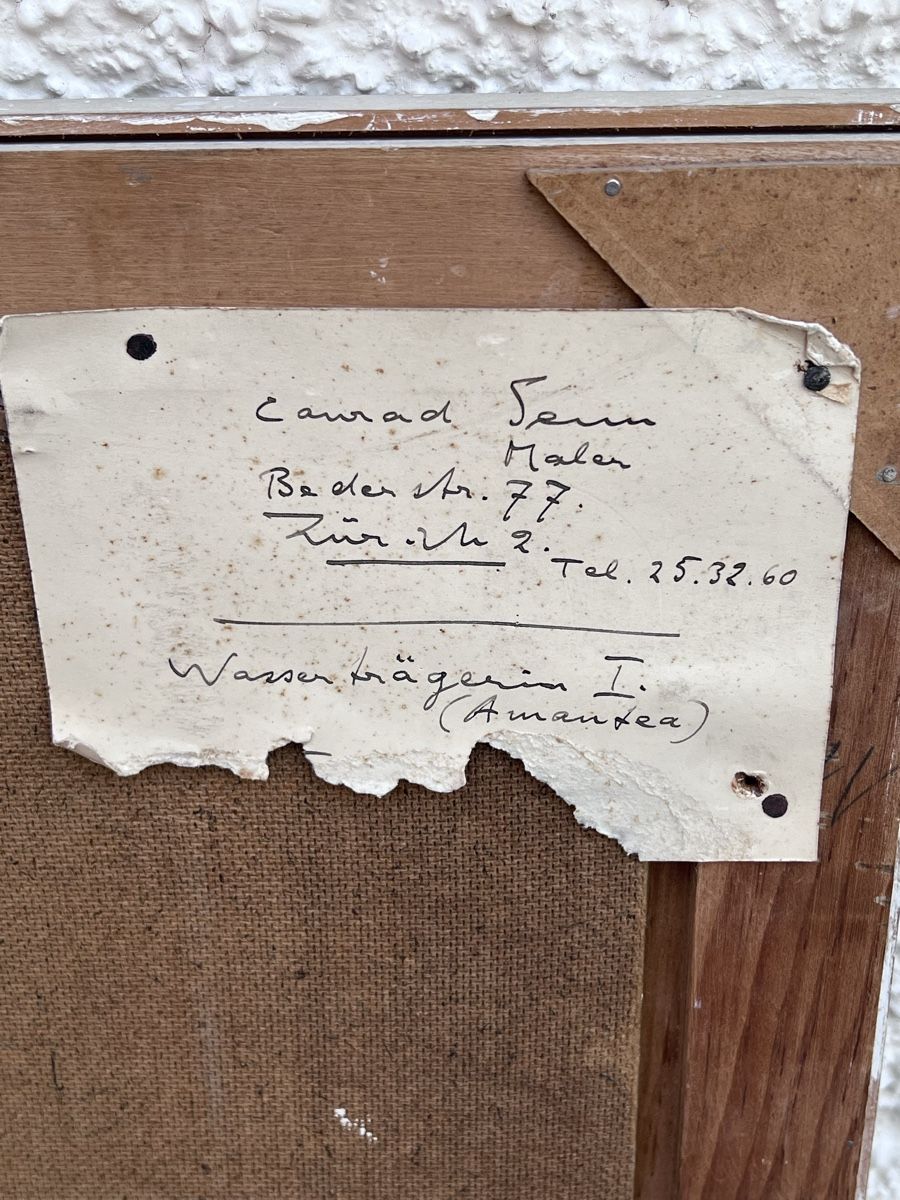 Conrad Senn
Maler
Bederstr. 77.
Zürich 2.
Tel. 25.32.60
Wasserträgerin I.
(Amantea)